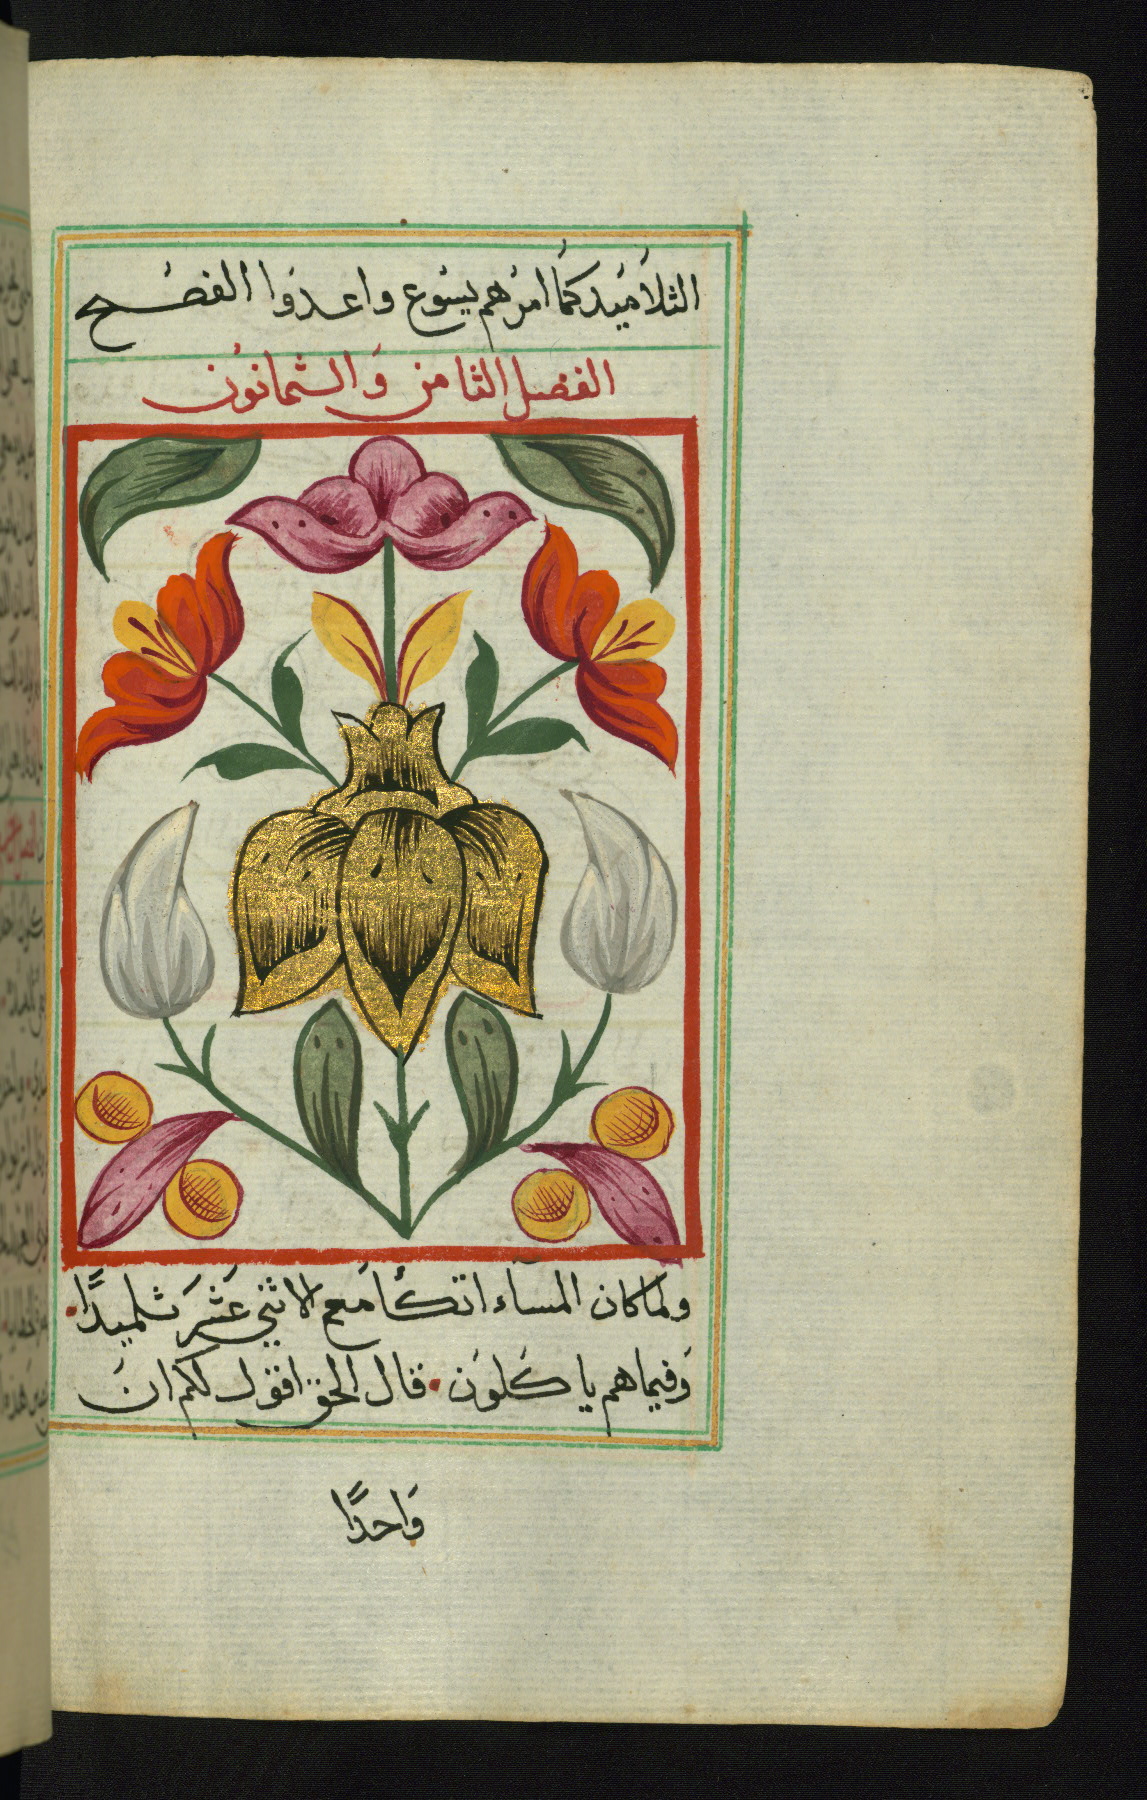 التلاميد كما امرهم يسوع واعدوا الفصح
الفصل الثامن والثمانون
ولما كان المساء اتكأ مع الاثني عشر تلميدًا
وفيما هم ياكلون قال الحق اقول لكم ان
واحدًا